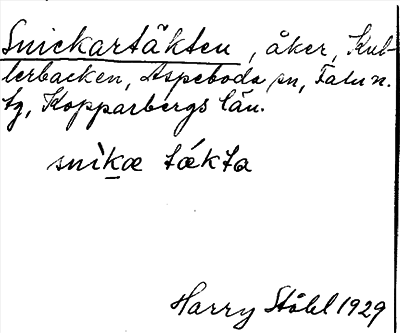 Snickartäkten, åker, Kub-
lerbacken, Aspeboda sn, Falu n.
tg, Kopparbergs län.
snìkæ tǽkta
Harry Ståhl 1929